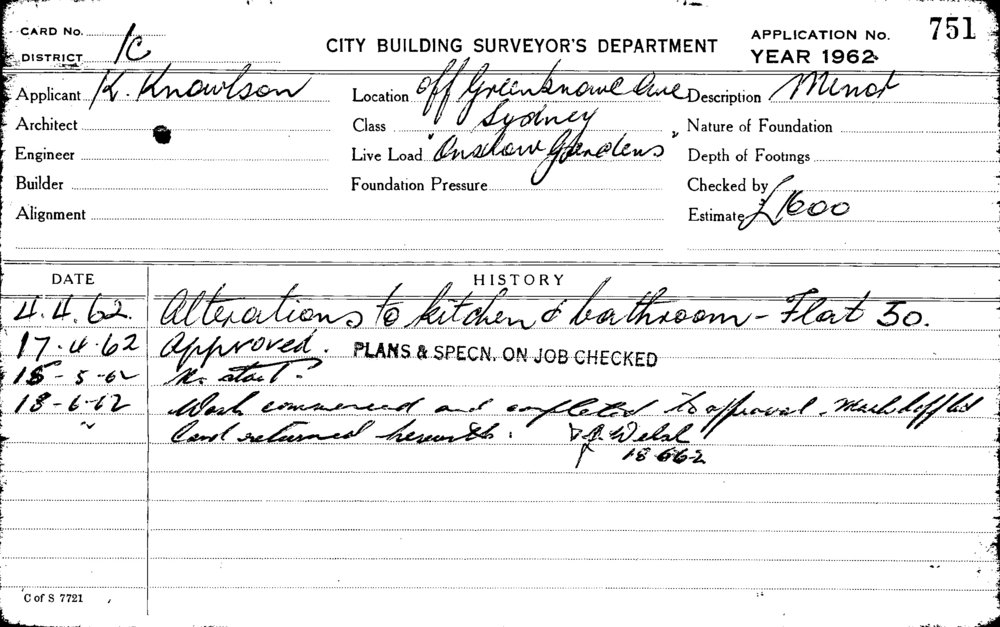 CARD No.
DISTRICT 1C
CITY BUILDING SURVEYOR'S DEPARTMENT
APPLICATION No. 751
YEAR 1962
Applicant K. Knowlson
Location off Greenknowe Ave
Description Minor
Architect
Class Sydney
Nature of Foundation
Engineer
Live Load "Onslow Gardens"
Depth of Footings
Builder
Foundation Pressure
Checked by
Alignment
Estimate £1600
DATE HISTORY
4.4.62. Alterations to kitchen & bathroom - Flat 50.
17.4.62 Approved. PLANS & SPECN. ON JOB CHECKED
15-5-62 No start.
18-6-62 Work commenced and completed to approval.
" Card returned herewith. Welsh
18 6 62
C of S 7721